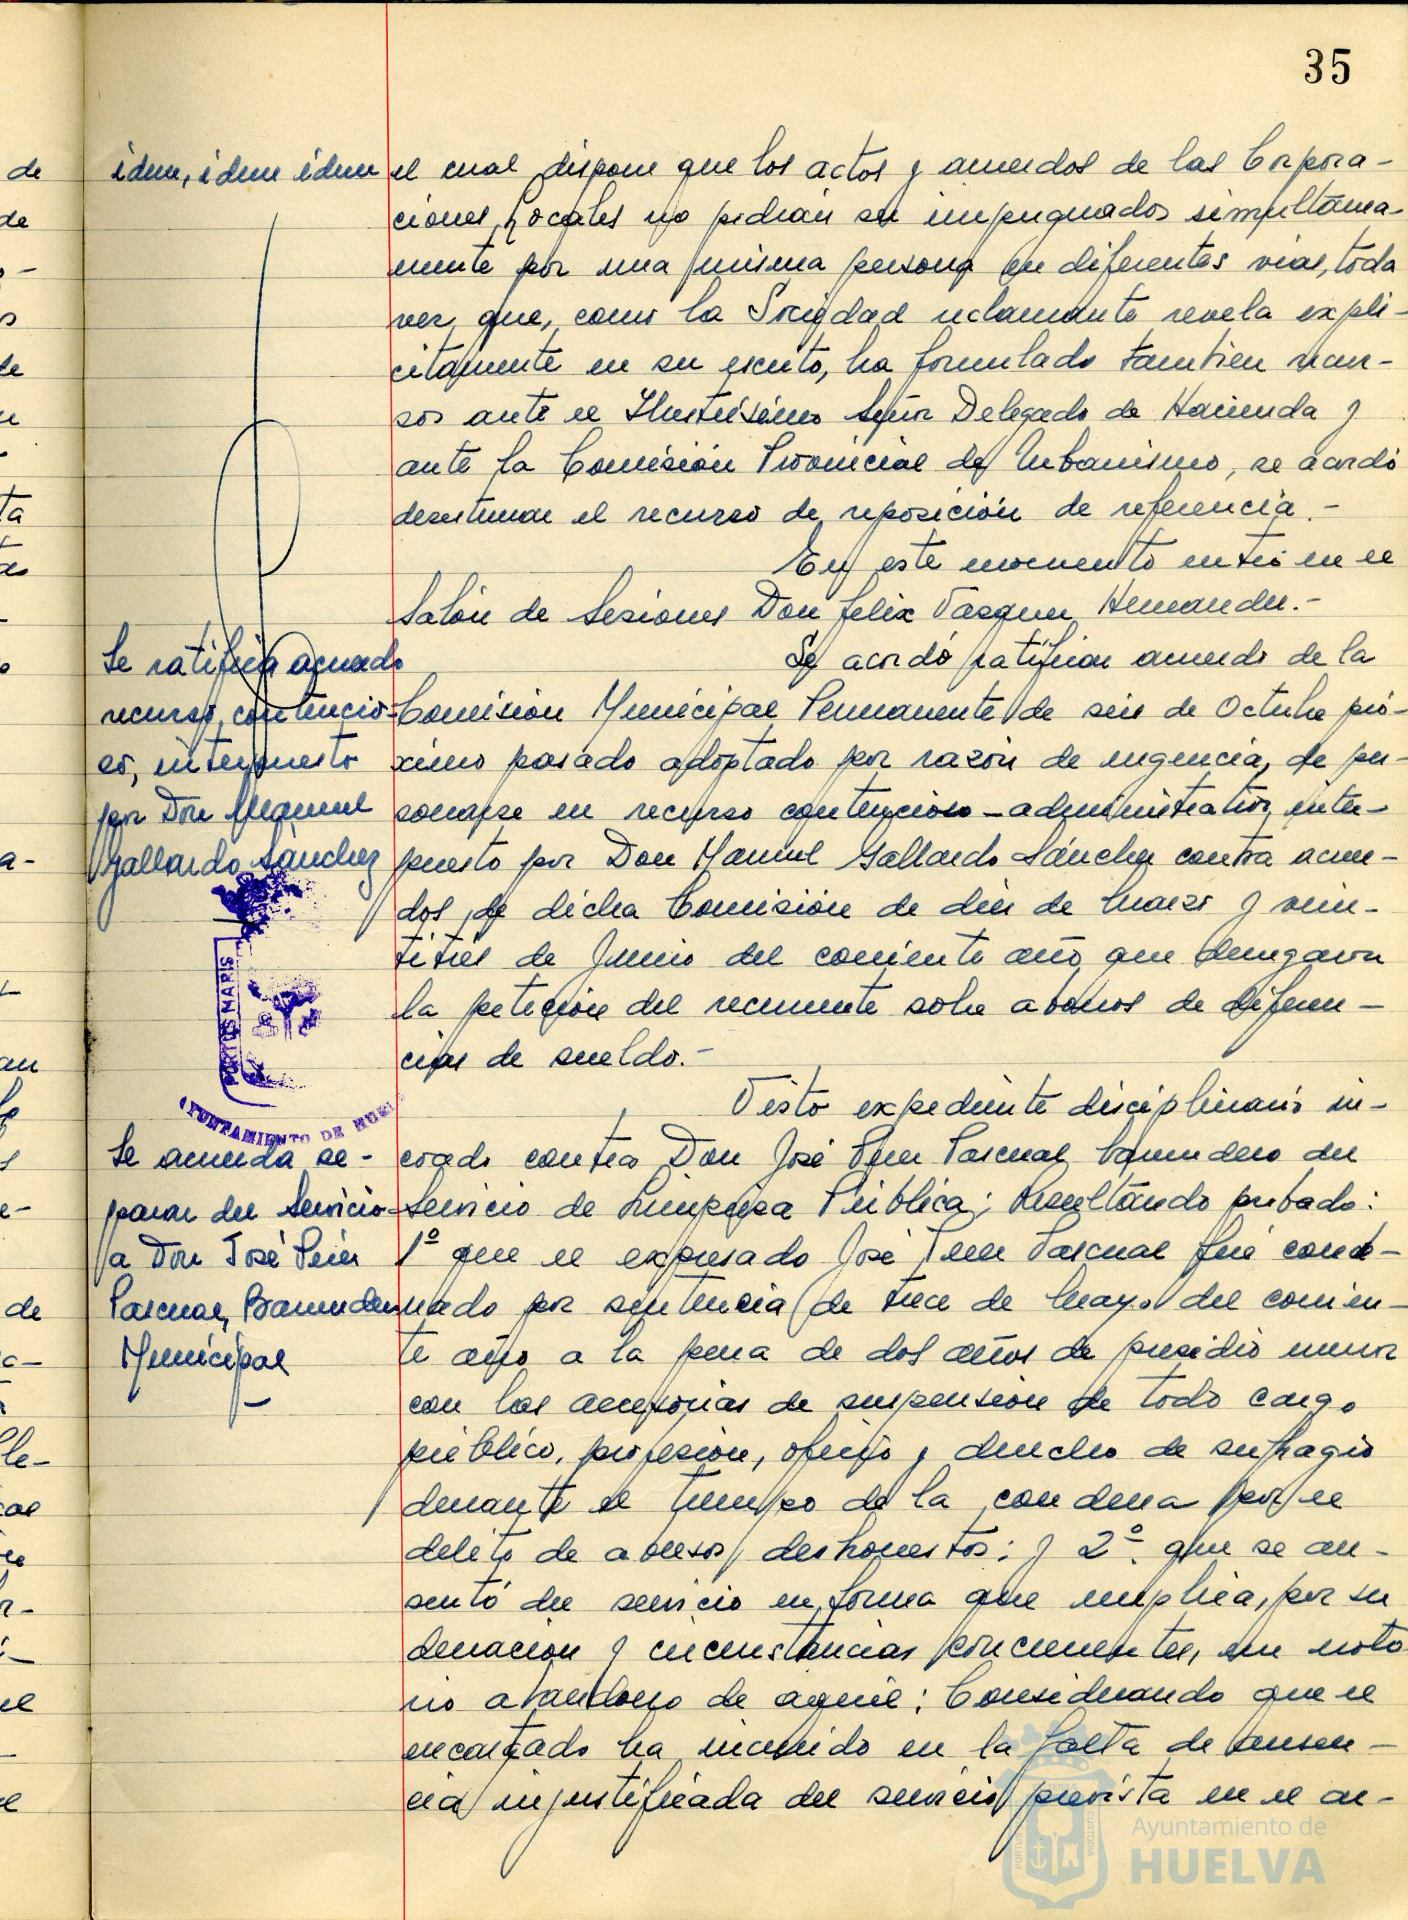 35
idem, idem idem
el cual dispone que los actos y acuerdos de las Corpora-
ciones Locales no podrán ser impugnados simultánea-
mente por una misma persona en diferentes vias, toda
vez que, como la Sociedad reclamante revela expli-
citamente en su escrito, ha formulado tambien recur-
sos ante el Ilustrísimo Señor Delegado de Hacienda y
ante la Comisión Provincial de Urbanismo, se acordó
desestimar el recurso de reposición de referencia.-
En este momento entró en el
Salón de Sesiones Don Felix Vasquez Hernandez.-
Se ratifica acuerdo
recurso contencio-
so, interpuesto
por Don Manuel
Gallardo Sánchez
Se acordó ratificar acuerdo de la
Comisión Municipal Permanente de seis de Octubre pró-
ximo pasado adoptado por razón de urgencia, de per-
sonarse en recurso contencioso-administrativo, inter-
puesto por Don Manuel Gallardo Sánchez contra acuer-
dos de dicha Comisión de diez de Marzo y vein-
titrés de Junio del corriente año, que denegaron
la petición del recurrente sobre abonos de diferen-
cias de sueldo.-
PORTUS MARIS
AYUNTAMIENTO DE HUELVA
Se acuerda se-
parar del Servicio
a Don José Peréz
Pascual, Barrendero
Municipal
Visto expediente disciplinario in-
coado contra Don José Perez Pascual, barrendero del
Servicio de Limpieza Pública; Resultando probado:
1º que el expresado José Perez Pascual fué conde-
nado por sentencia de trece de Mayo del corrien-
te año a la pena de dos años de presidio menor
con las accesorias de suspensión de todo cargo
público, profesión, oficio y derecho de sufragio
durante el tiempo de la condena por el
delito de abusos deshonestos; y 2º. que se au-
sentó del servicio en forma que implica, por su
duración y circunstancias concurrentes, un noto
rio abandono de aquél; Considerando que el
encartado ha incurrido en la falta de ausen-
cia injustificada del servicio prevista en el ar-
Ayuntamiento de
HUELVA